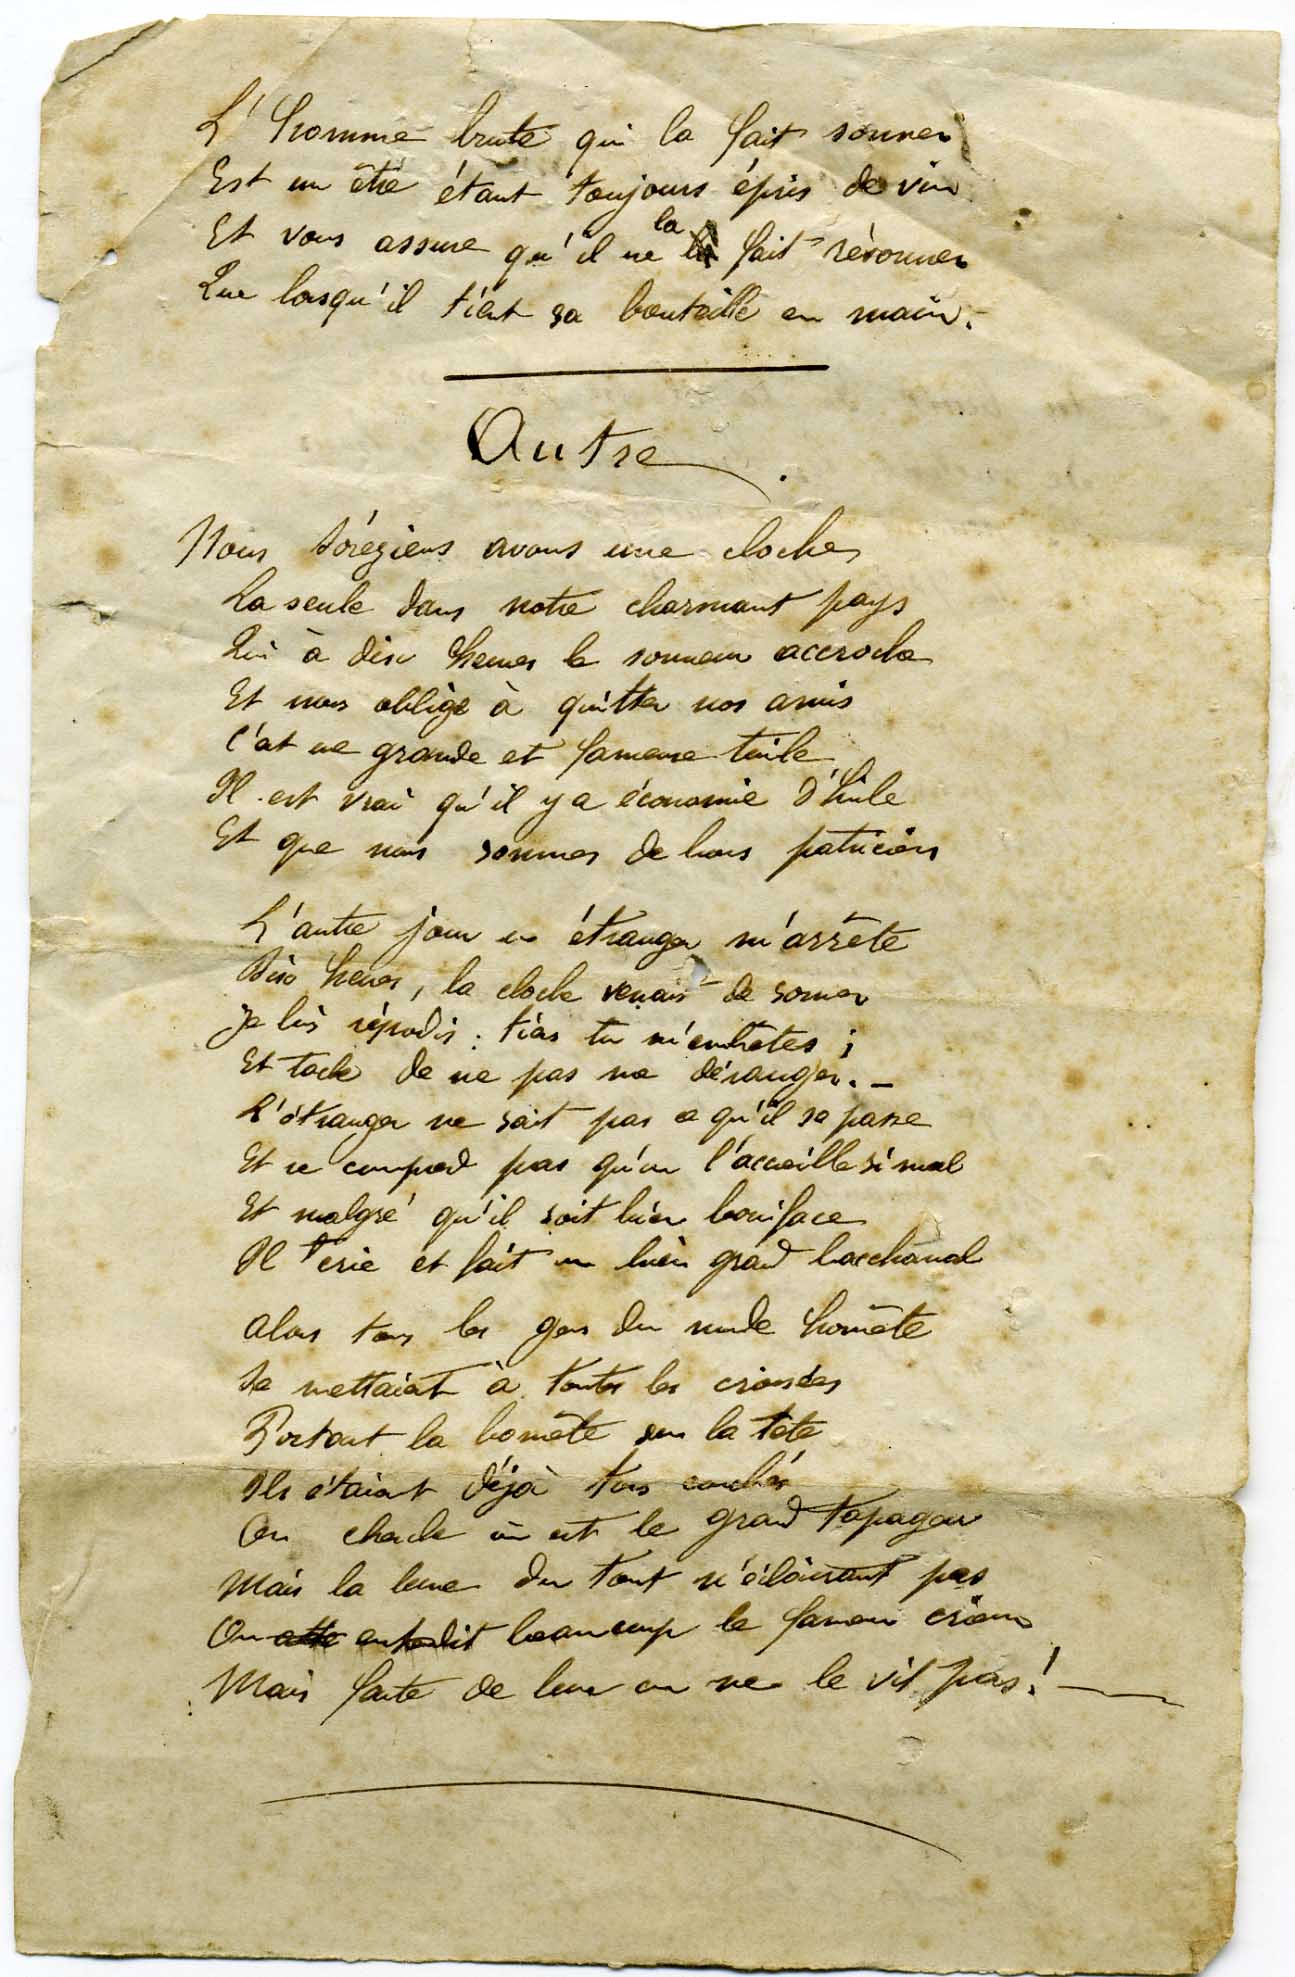 L'homme brute qui la fait sonner
Est un être étant toujours épris de vin
Et vous assure qu'il ne la fait résonner
Que lorsqu'il tient sa bouteille en main.
Autre
Nous Sorégiens avons une cloche
La seule dans notre charmant pays
Qui à dix heures le sonneur accroche
Et nous oblige à quitter nos amis
C'est une grande et fameuse tuile
Il est vrai qu'il y a économie d'huile
Et que nous sommes de bons patriciens
L'autre jour un étranger m'arrête
Dix heures, la cloche venait de sonner
Je lui répondis : tiens tu m'embêtes ;
Et tache de ne pas me déranger. -
L'étranger ne sait pas ce qu'il se passe
Et ne comprend pas qu'on l'accueille si mal
Et malgré qu'il soit bien boniface
Il crie et fait un bien grand bacchanal
Alors tous les gens du monde honnête
Se mettaient à toutes les croisées
Portant la bonnête sur la tête
Ils étaient déjà tous couchés
On cherche où est le grand tapageur
Mais la lune du tout n'éclairant pas
On entendit beaucoup le fameux crieur
Mais faute de lune on ne le vit pas !